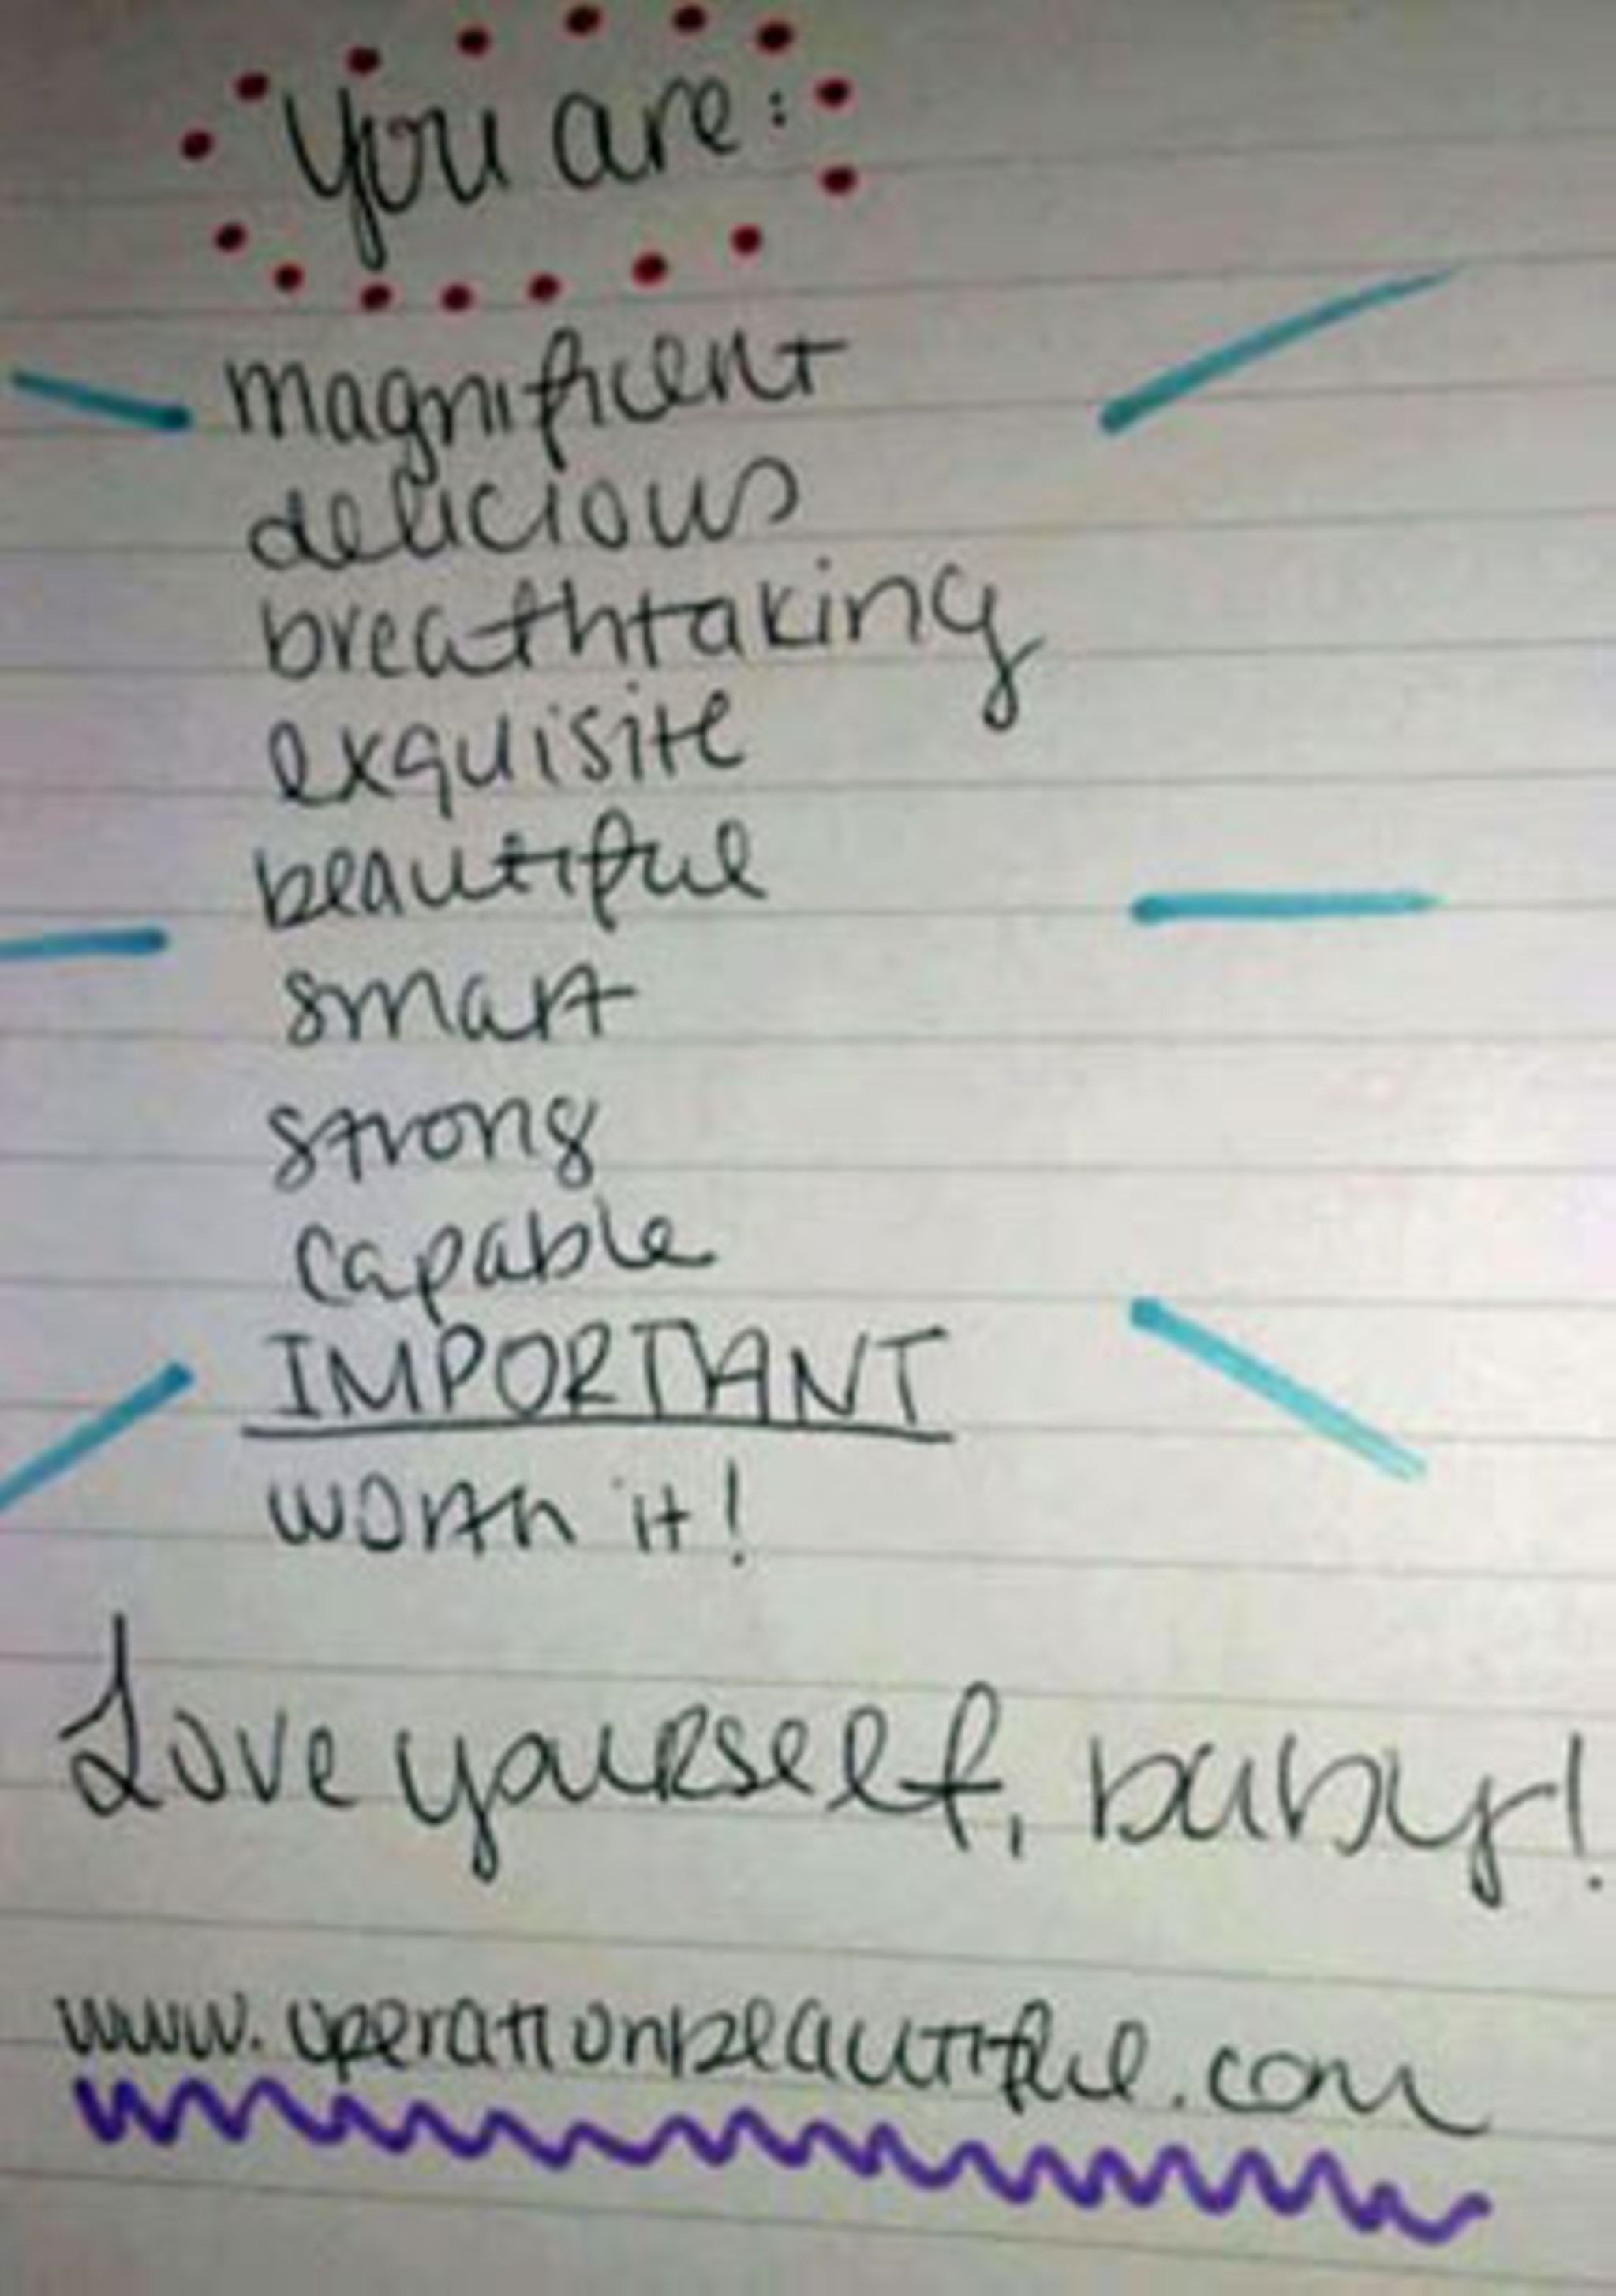 You are:
magnificent
delicious
breathtaking
exquisite
beautiful
smart
strong
capable
IMPORTANT
worth it!
Love yourself, baby!
www.operationbeautiful.com